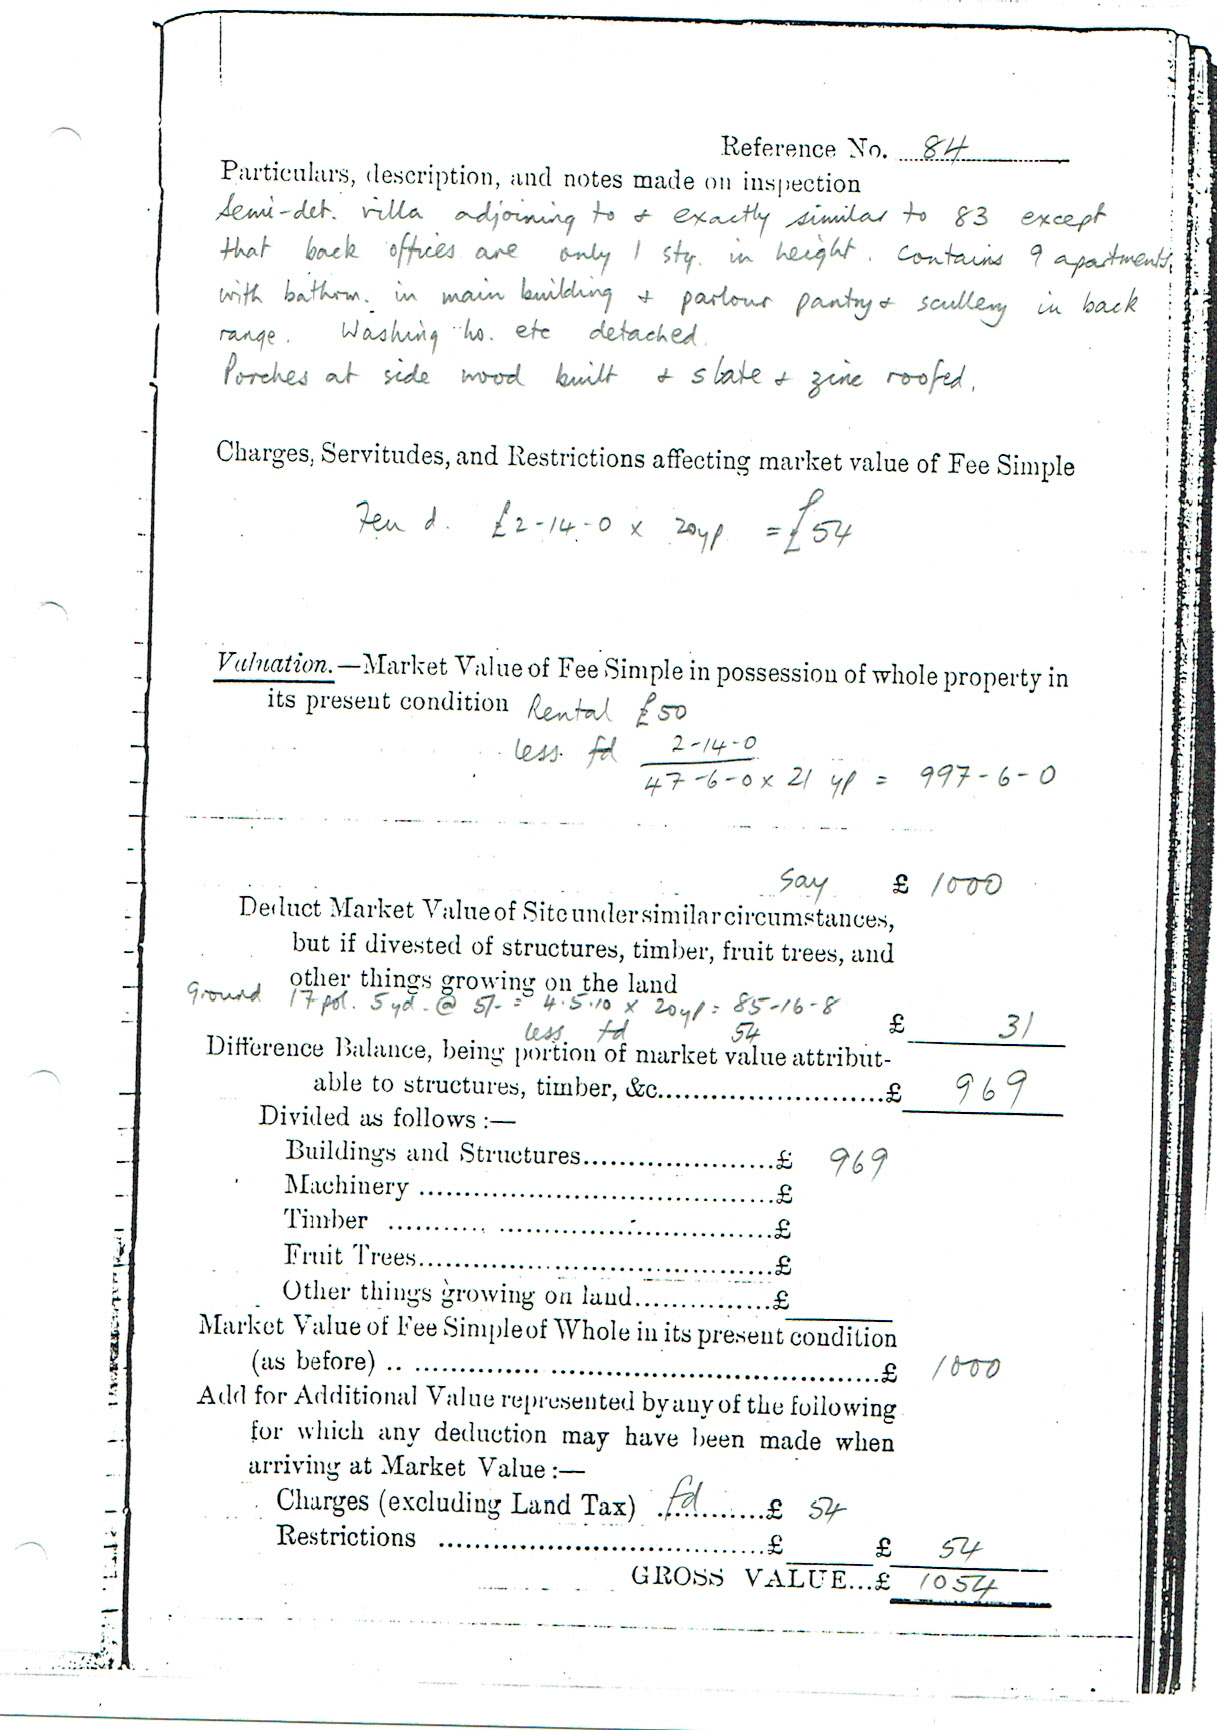 Reference No. 84
Particulars, description, and notes made on inspection
Semi-det. villa adjoining to & exactly similar to 83 except
that back offices are only 1 sty. in height. Contains 9 apartments
with bathrm. in main building & parlour pantry & scullery in back
range. Washing ho. etc detached.
Porches at side wood built & slate & zinc roofed.
Charges, Servitudes, and Restrictions affecting market value of Fee Simple
Feu d. £2-14-0 x 20yp = £54
Valuation.—Market Value of Fee Simple in possession of whole property in
its present condition Rental £50
less fd 2-14-0
47-6-0 x 21 yp = 997-6-0
Say £ 1000
Deduct Market Value of Site under similar circumstances,
but if divested of structures, timber, fruit trees, and
other things growing on the land
Ground 17 pol. 5 yd. @ 5/- = 4.5.10 x 20yp = 85-16-8
less fd 54 £ 31
Difference Balance, being portion of market value attribut-
able to structures, timber, &c..........................£ 969
Divided as follows :—
Buildings and Structures......................£ 969
Machinery .........................................£
Timber ............ ................................£
Fruit Trees.........................................£
Other things growing on land................£
Market Value of Fee Simple of Whole in its present condition
(as before) .. ................ ........................................£ 1000
Add for Additional Value represented by any of the following
for which any deduction may have been made when
arriving at Market Value :—
Charges (excluding Land Tax) fd ............£ 54
Restrictions ......................................£ £ 54
GROSS VALUE...£ 1054